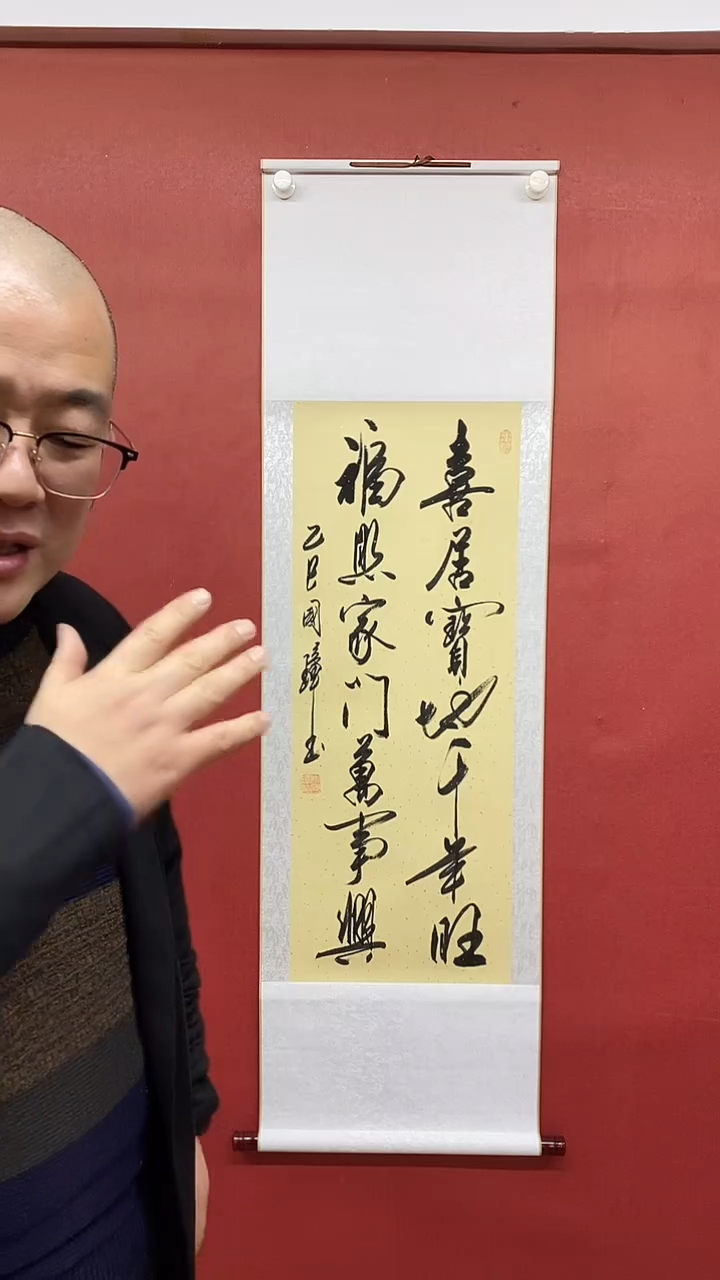 喜居寳地千年旺
福照家门萬事興
乙巳國璋玉